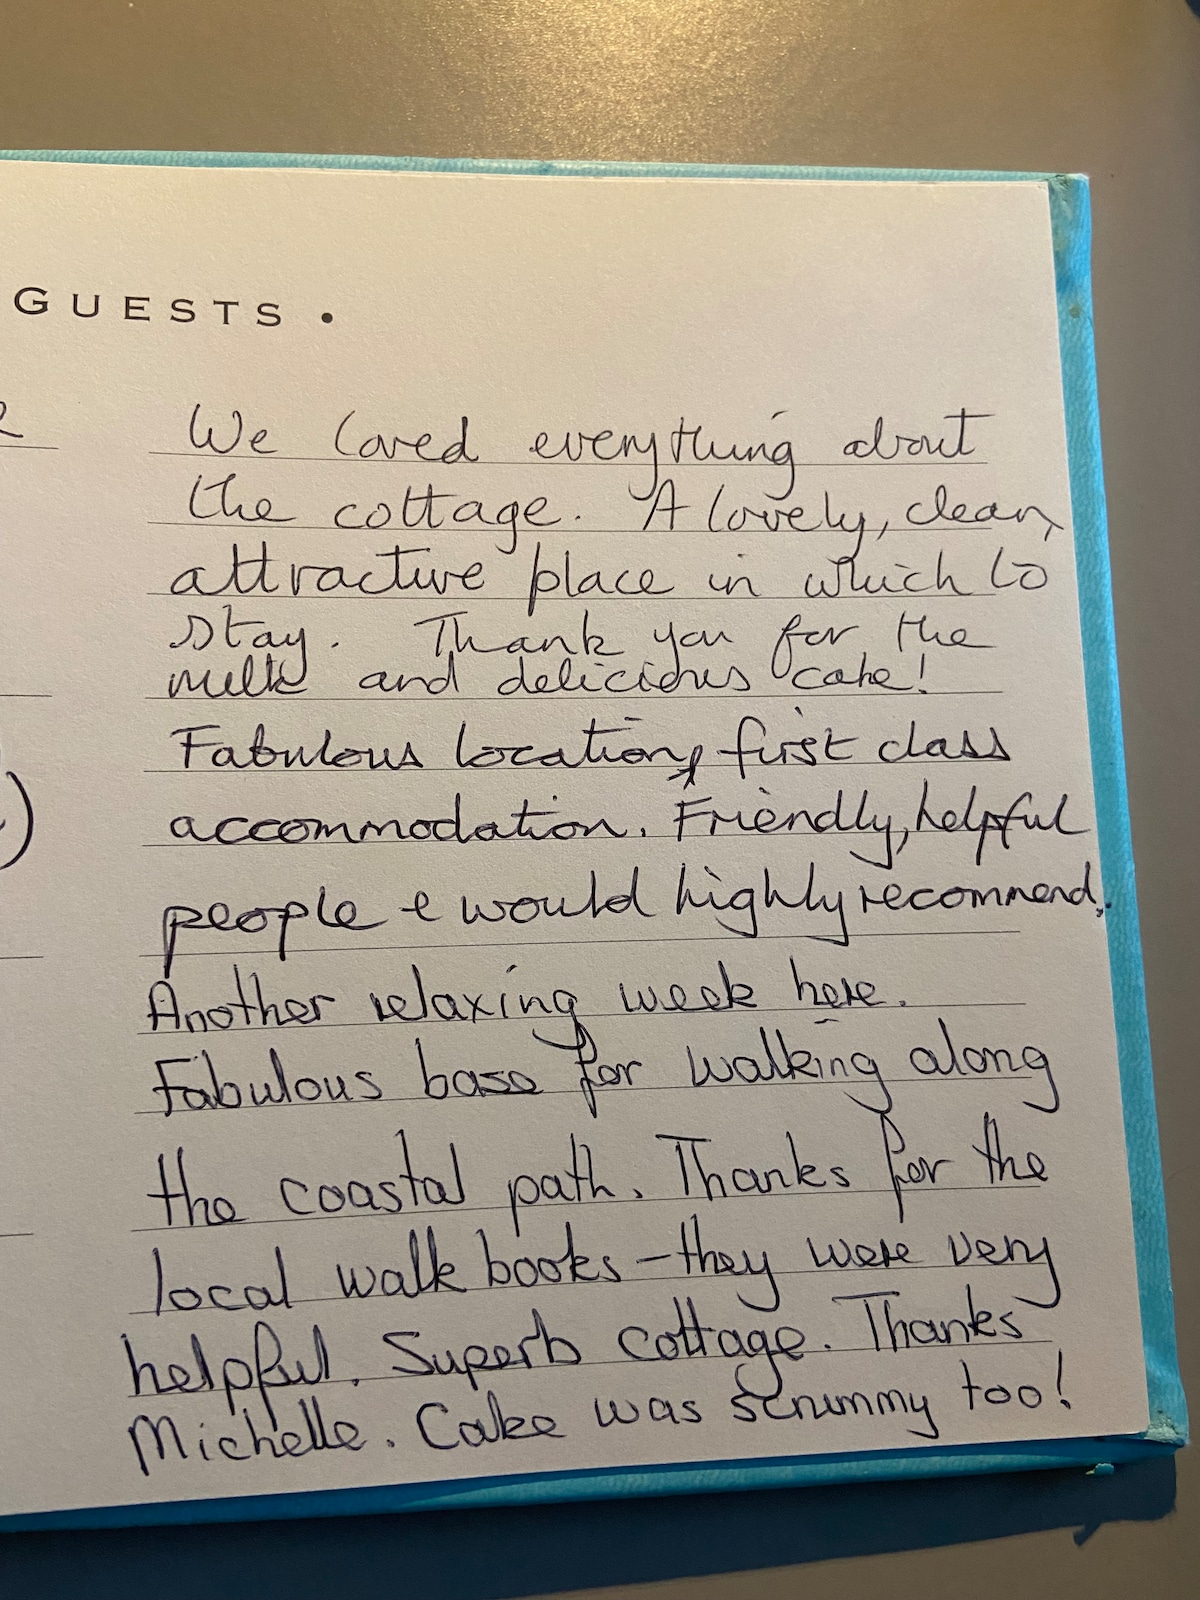 GUESTS •
We loved everything about
the cottage. A lovely, clean,
attractive place in which to
stay. Thank you for the
milk and delicious cake!
Fabulous location, first class
accommodation. Friendly, helpful
people & would highly recommend.
Another relaxing week here.
Fabulous base for walking along
the coastal path. Thanks for the
local walk books – they were very
helpful. Superb cottage. Thanks
Michelle. Cake was scrummy too!